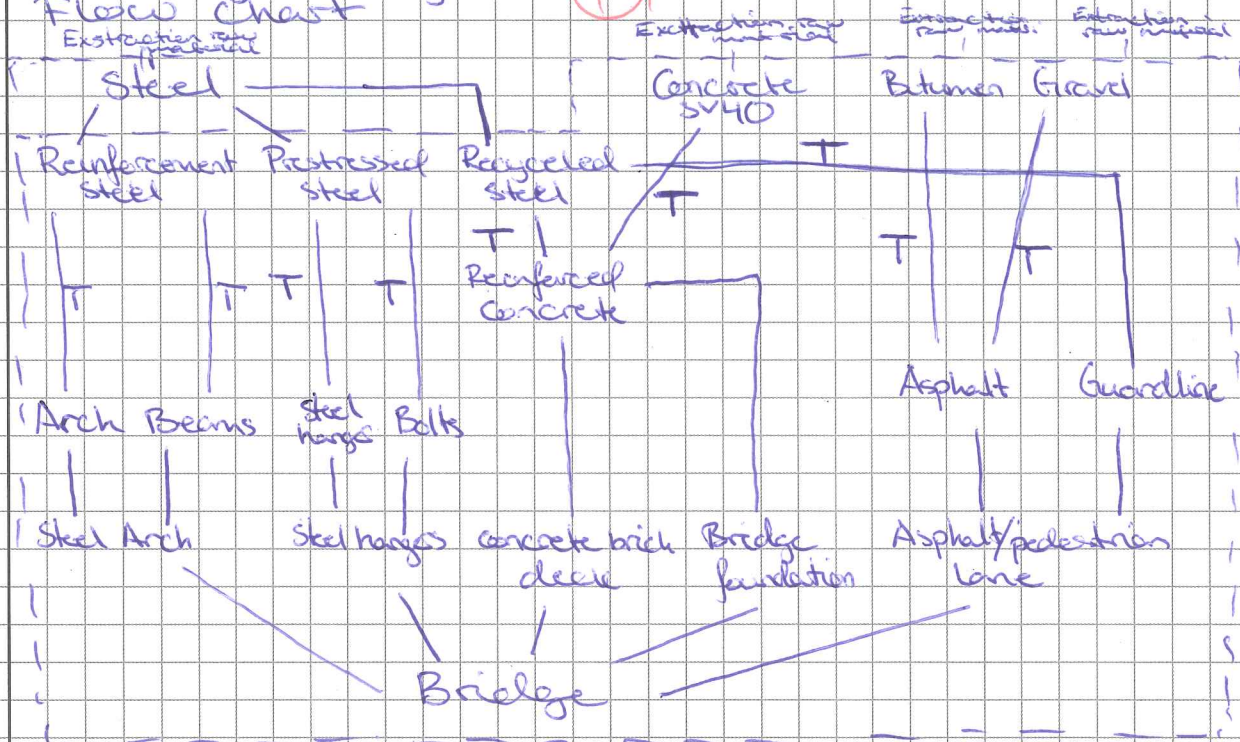 Flow Chart
Exstraction raw
material
Exctraction raw
material
Extraction
raw mat.
Extraction
raw material
Steel
Concrete
SV40
Bitumen
Gravel
Reinforcement
Steel
Prestressed
Steel
Recycled
Steel
T
T
T
T
T
T
T
T
T
Reinforced
Concrete
Asphalt
Guardline
Arch
Beams
Steel
hangs
Bolts
Steel Arch
Steel hangs
concrete brick
deck
Bridge
foundation
Asphalt/pedestrian
Lane
Bridge